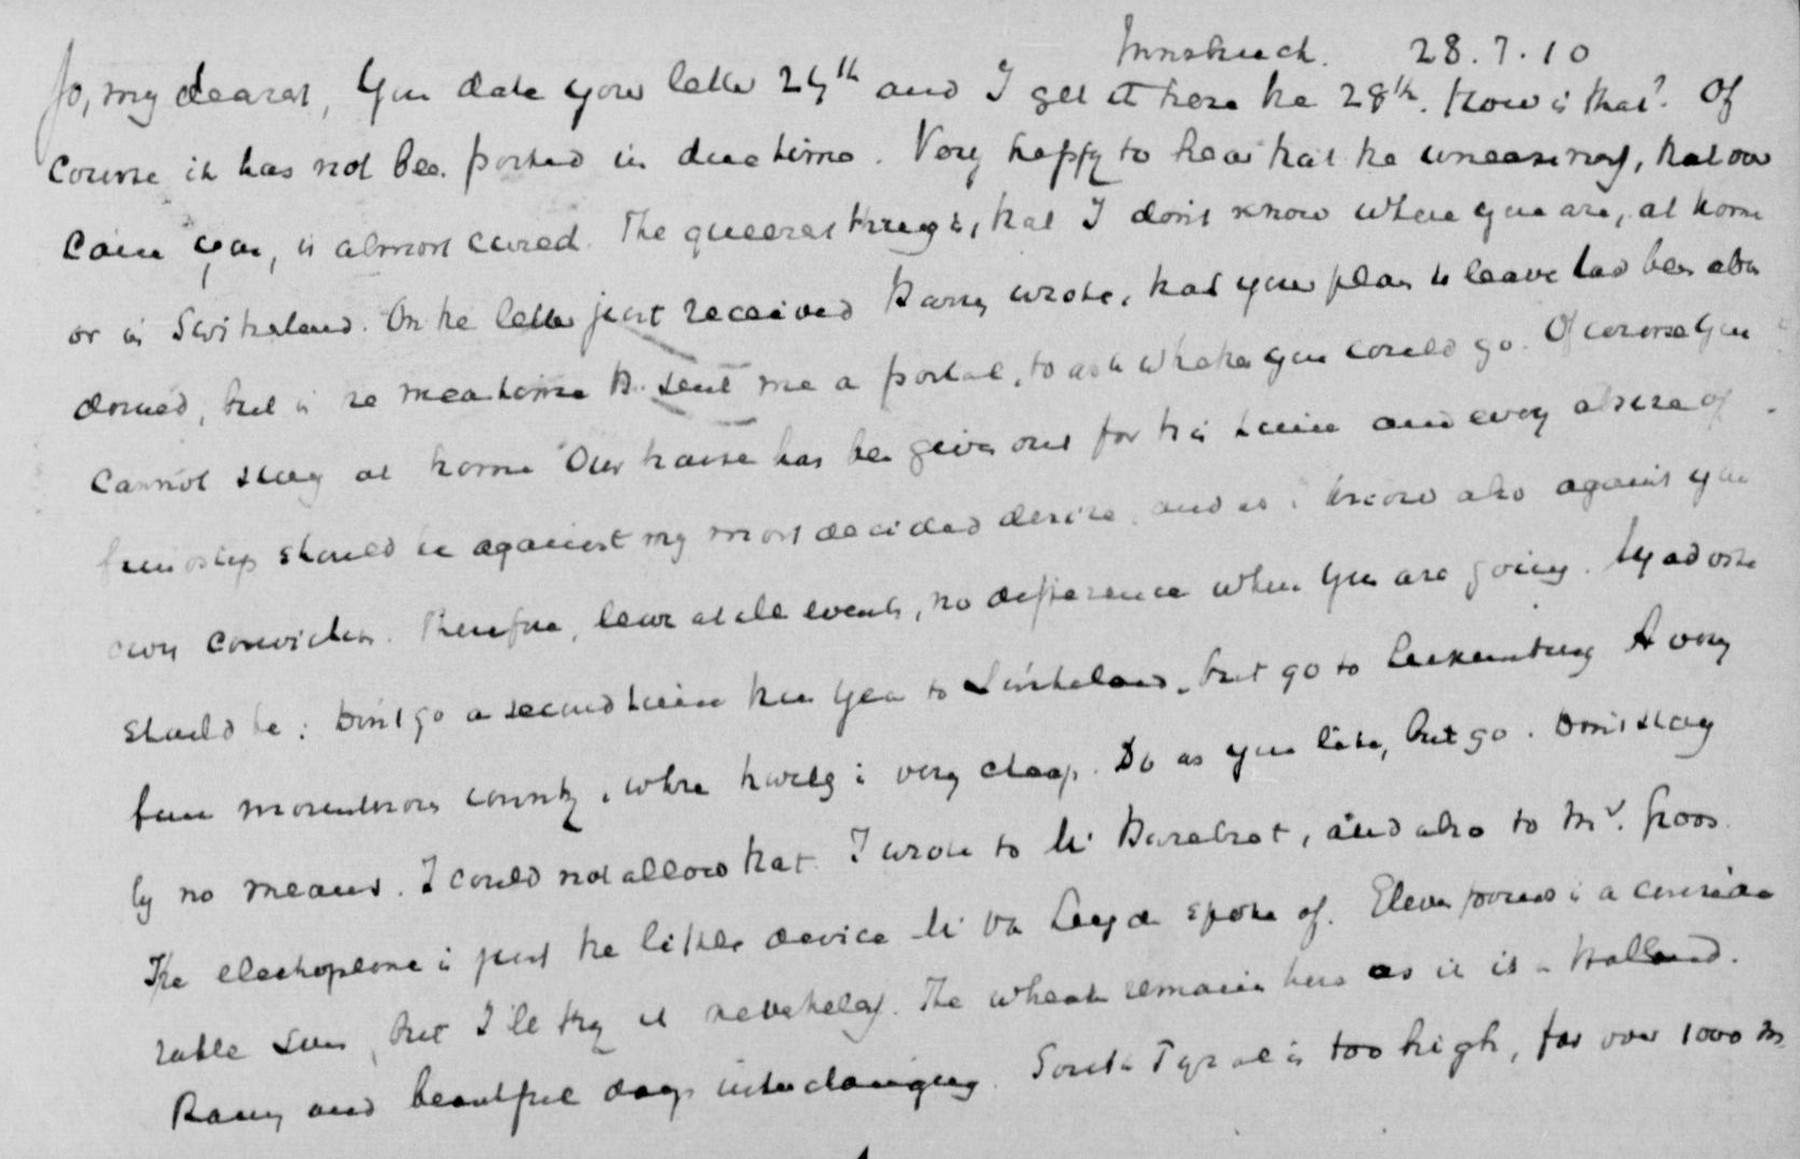 Innsbruck. 28.7.10
Jo, my dearest, You date your letter 24th and I get it here the 28th. How is that? Of
course it has not been posted in due time. Very happy to hear that the uneasiness, that over
came you, is almost cured. The queerest thing is, that I don't know where you are, at home
or in Switzerland. In the letter just received Barry wrote, that your plan to leave had been aban
doned, but in the meantime B. sent me a postal, to ask whether you could go. Of course you
cannot stay at home. Our house has been given out for this time and every abuse of
friendship should be against my most decided desire, and as I know also against your
own conviction. Therefore, leave at all events, no difference where you are going. My advise
should be: Don't go a second time this year to Switzerland, but go to Luxemburg. A very
fine mountainous country, where living is very cheap. Do as you like, but go. Don't stay
by no means. I could not allow that. I wrote to Mr and also to Mr. Groos.
The electrophone is just the little device Mr van Leyden spoke of. Eleven pounds is a conside
rable sum, but I'll try it nevertheless. The wheather remains here as it is in Holland.
Rainy and beautiful days interchanging. South Tyrol is too high, far over 1000 M.